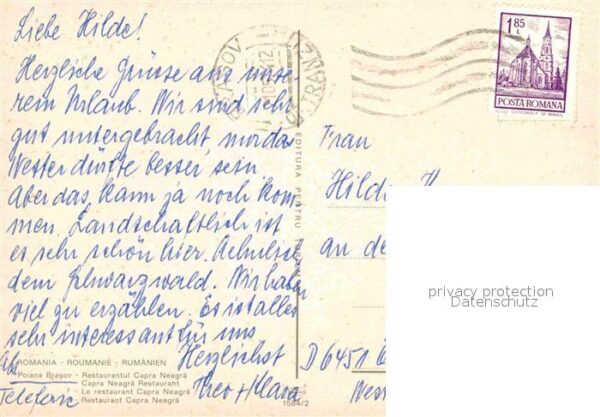 Liebe Hilde!
Herzliche Grüsse aus unse
rem Urlaub. Wir sind sehr
gut untergebracht, nur das
Wetter dürfte besser sein.
Aber das kann ja noch kom
men. Landschaftlich ist
es sehr schön hier. Aehnlich
dem Schwarzwald. Wir haben
viel zu erzählen. Es ist alles
sehr interessant für uns
Herzlichst
Theo + Klara
ROMANIA - ROUMANIE - RUMÄNIEN
Poiana Braşov - Restaurantul Capra Neagră
Capra Neagră Restaurant
- Le restaurant Capra Neagră
- Restaurant Capra Neagră
1584/2
EDITURA PENTRU TURISM
BRAŞOV
1,85 L
POSTA ROMANA
Frau
Hilde H
an de
D 6451
West
privacy protection
Datenschutz